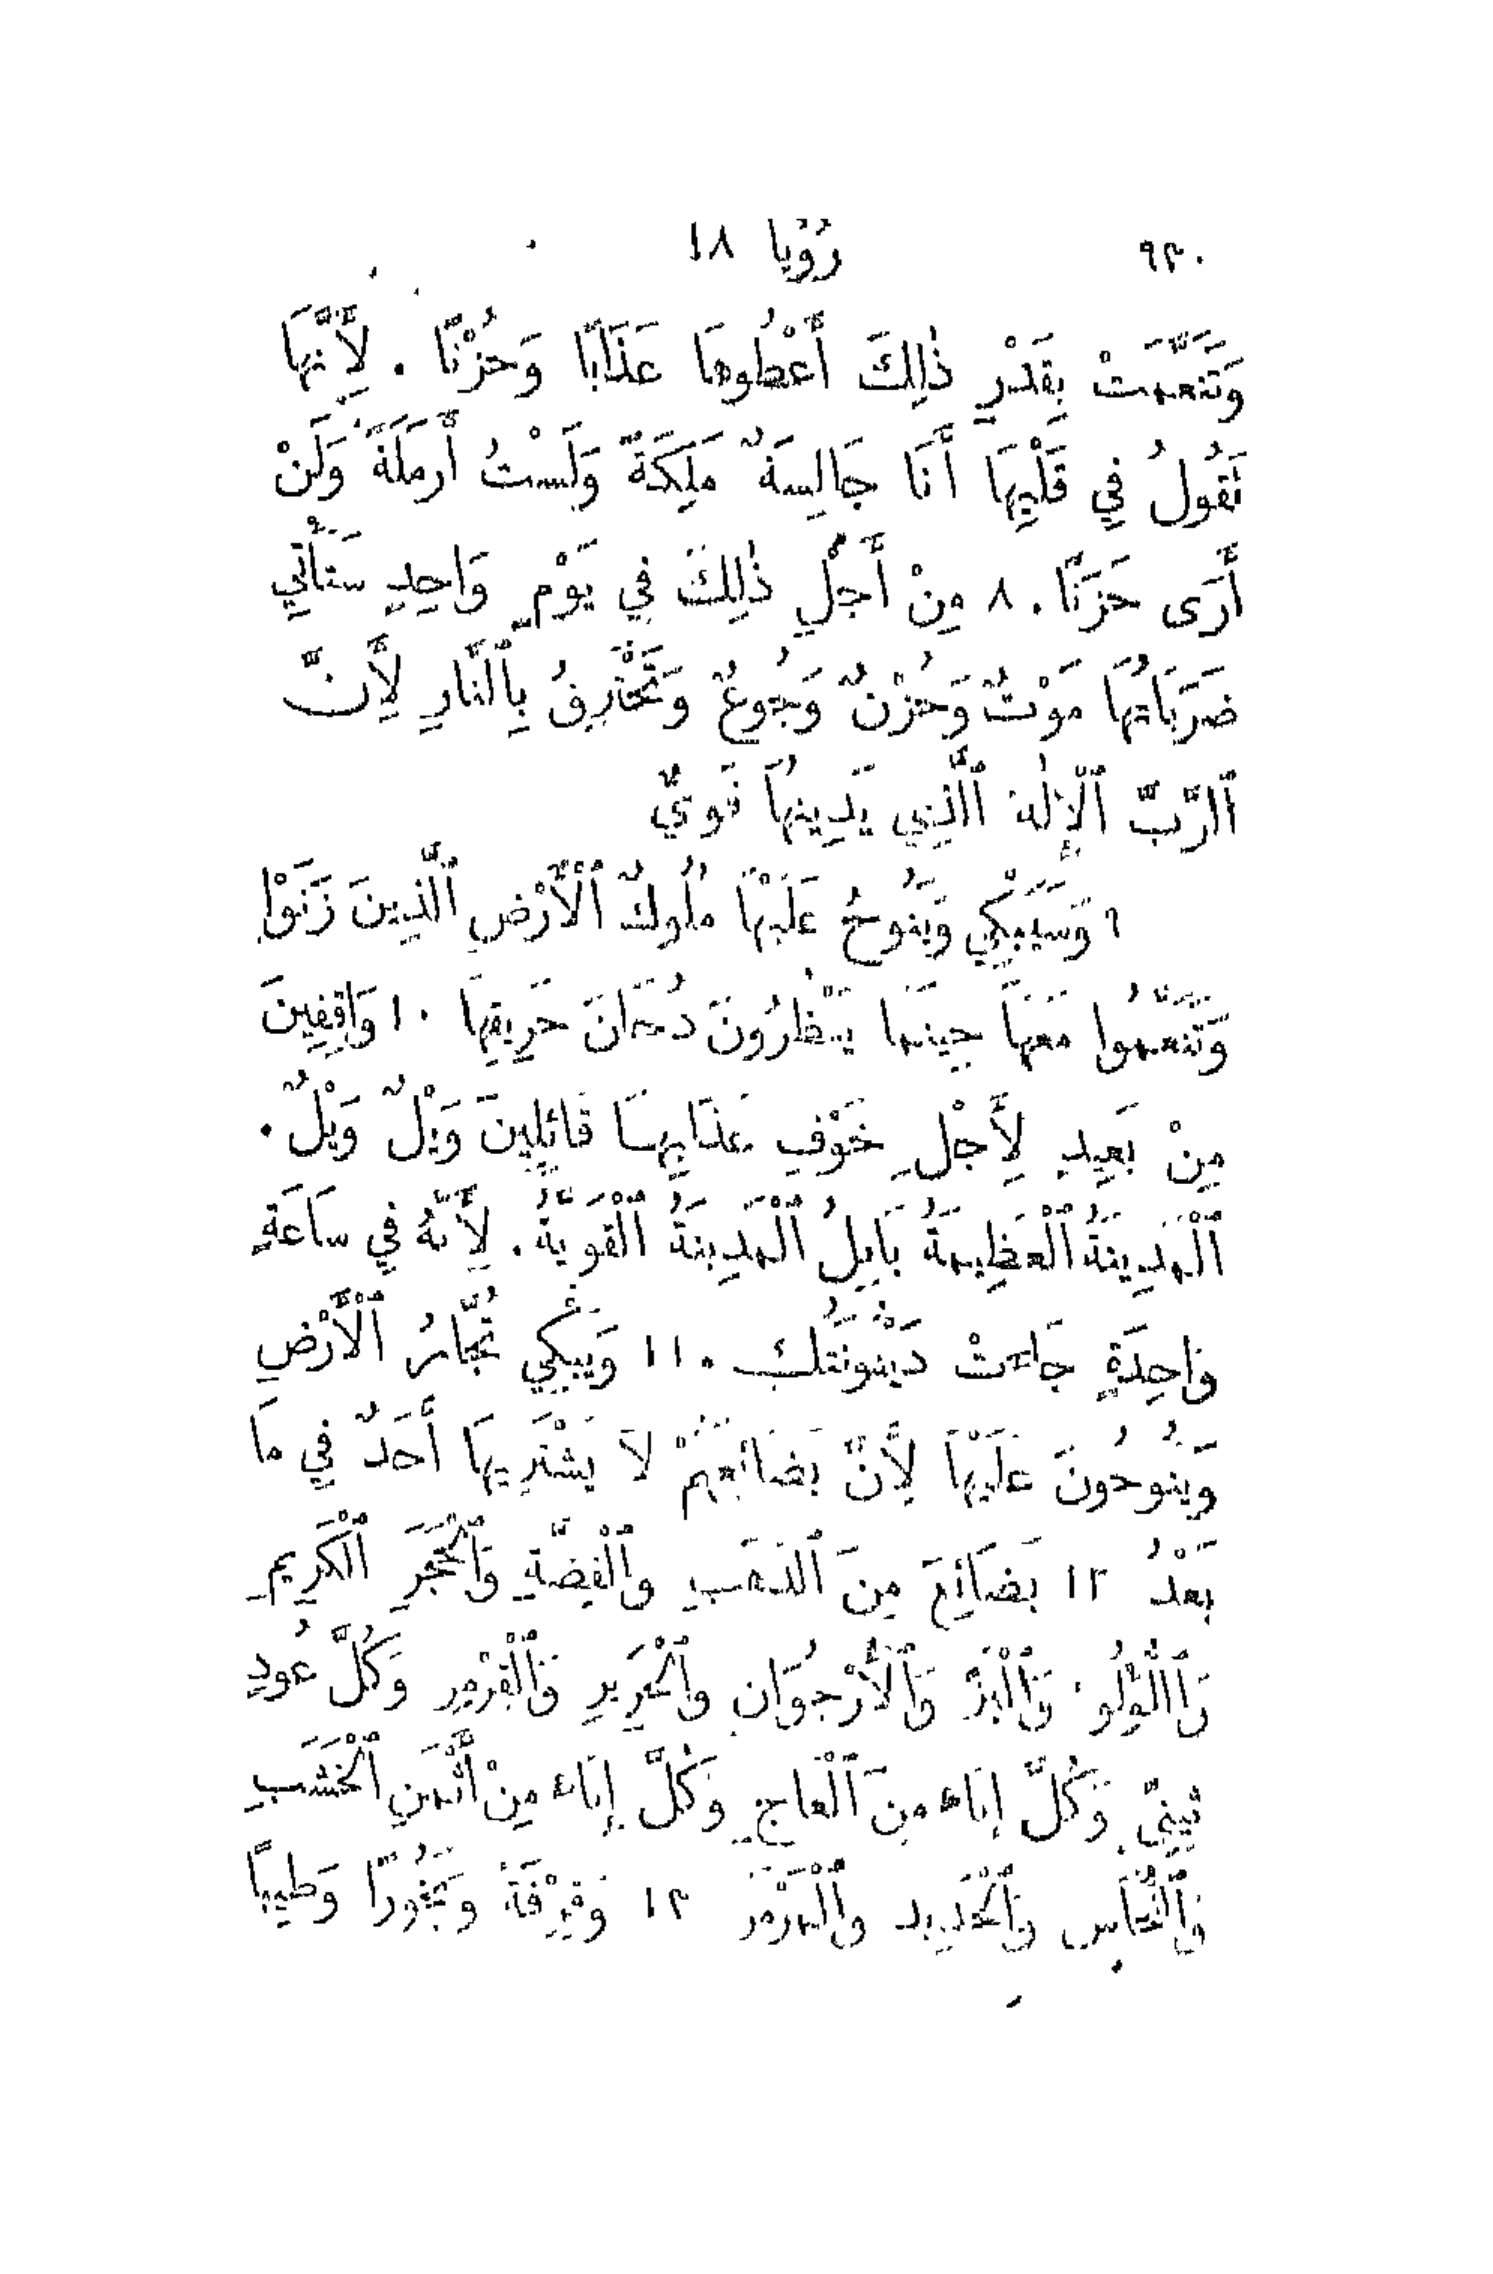 ٩٣٠ رُؤْيَا ١٨
وَتَنَعَّمَتْ بِقَدْرِ ذٰلِكَ أَعْطُوهَا عَذَابًا وَحُزْنًا. لِأَنَّهَا
تَقُولُ فِي قَلْبِهَا أَنَا جَالِسَةٌ مَلِكَةً وَلَسْتُ أَرْمَلَةً وَلَنْ
أَرَى حَزَنًا. ٨ مِنْ أَجْلِ ذٰلِكَ فِي يَوْمٍ وَاحِدٍ سَتَأْتِي
ضَرَبَاتُهَا مَوْتٌ وَحُزْنٌ وَجُوعٌ وَتَحْتَرِقُ بِٱلنَّارِ لِأَنَّ
ٱلرَّبَّ ٱلْإِلٰهَ ٱلَّذِي يَدِينُهَا قَوِيٌّ
٩ وَسَيَبْكِي وَيَنُوحُ عَلَيْهَا مُلُوكُ ٱلْأَرْضِ ٱلَّذِينَ زَنَوْا
وَتَنَعَّمُوا مَعَهَا حِينَمَا يَنْظُرُونَ دُخَانَ حَرِيقِهَا ١٠ وَاقِفِينَ
مِنْ بَعِيدٍ لِأَجْلِ خَوْفِ عَذَابِهَا قَائِلِينَ وَيْلٌ وَيْلٌ.
ٱلْمَدِينَةُ ٱلْعَظِيمَةُ بَابِلُ ٱلْمَدِينَةُ ٱلْقَوِيَّةُ. لِأَنَّهُ فِي سَاعَةٍ
وَاحِدَةٍ جَاءَتْ دَيْنُونَتُكِ. ١١ وَيَبْكِي تُجَّارُ ٱلْأَرْضِ
وَيَنُوحُونَ عَلَيْهَا لِأَنَّ بَضَائِعَهُمْ لَا يَشْتَرِيهَا أَحَدٌ فِي مَا
بَعْدُ ١٢ بَضَائِعَ مِنَ ٱلذَّهَبِ وَٱلْفِضَّةِ وَٱلْحَجَرِ ٱلْكَرِيمِ
وَٱللُّؤْلُوءِ وَٱلْبَزِّ وَٱلْأُرْجُوَانِ وَٱلْحَرِيرِ وَٱلْقِرْمِزِ وَكُلَّ عُودٍ
ثِينِيٍّ وَكُلَّ إِنَاءٍ مِنَ ٱلْعَاجِ وَكُلَّ إِنَاءٍ مِنْ أَثْمَنِ ٱلْخَشَبِ
وَٱلنُّحَاسِ وَٱلْحَدِيدِ وَٱلْمَرْمَرِ ١٣ وَقِرْفَةً وَبَخُورًا وَطِيبًا